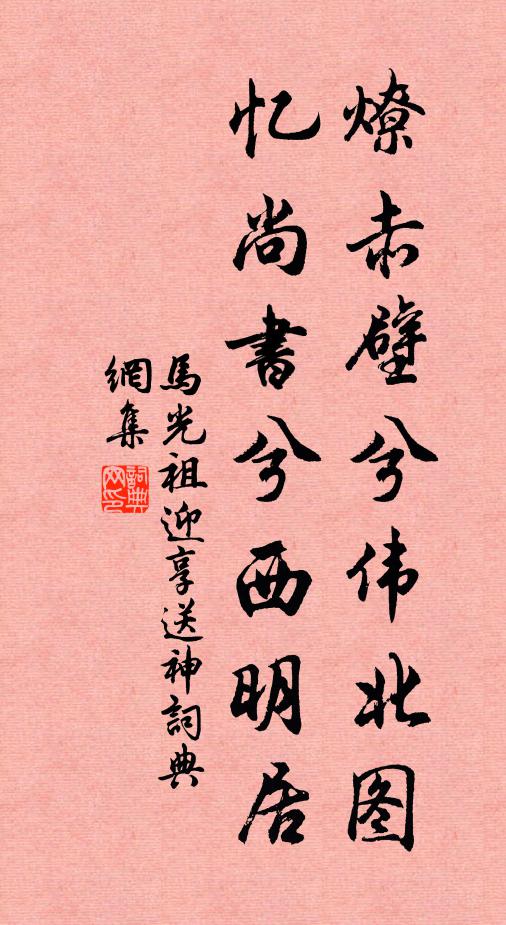 燎赤壁兮伟北图
忆尚书兮西明居
馬光祖迎享送神詞典
網集
詞典網印